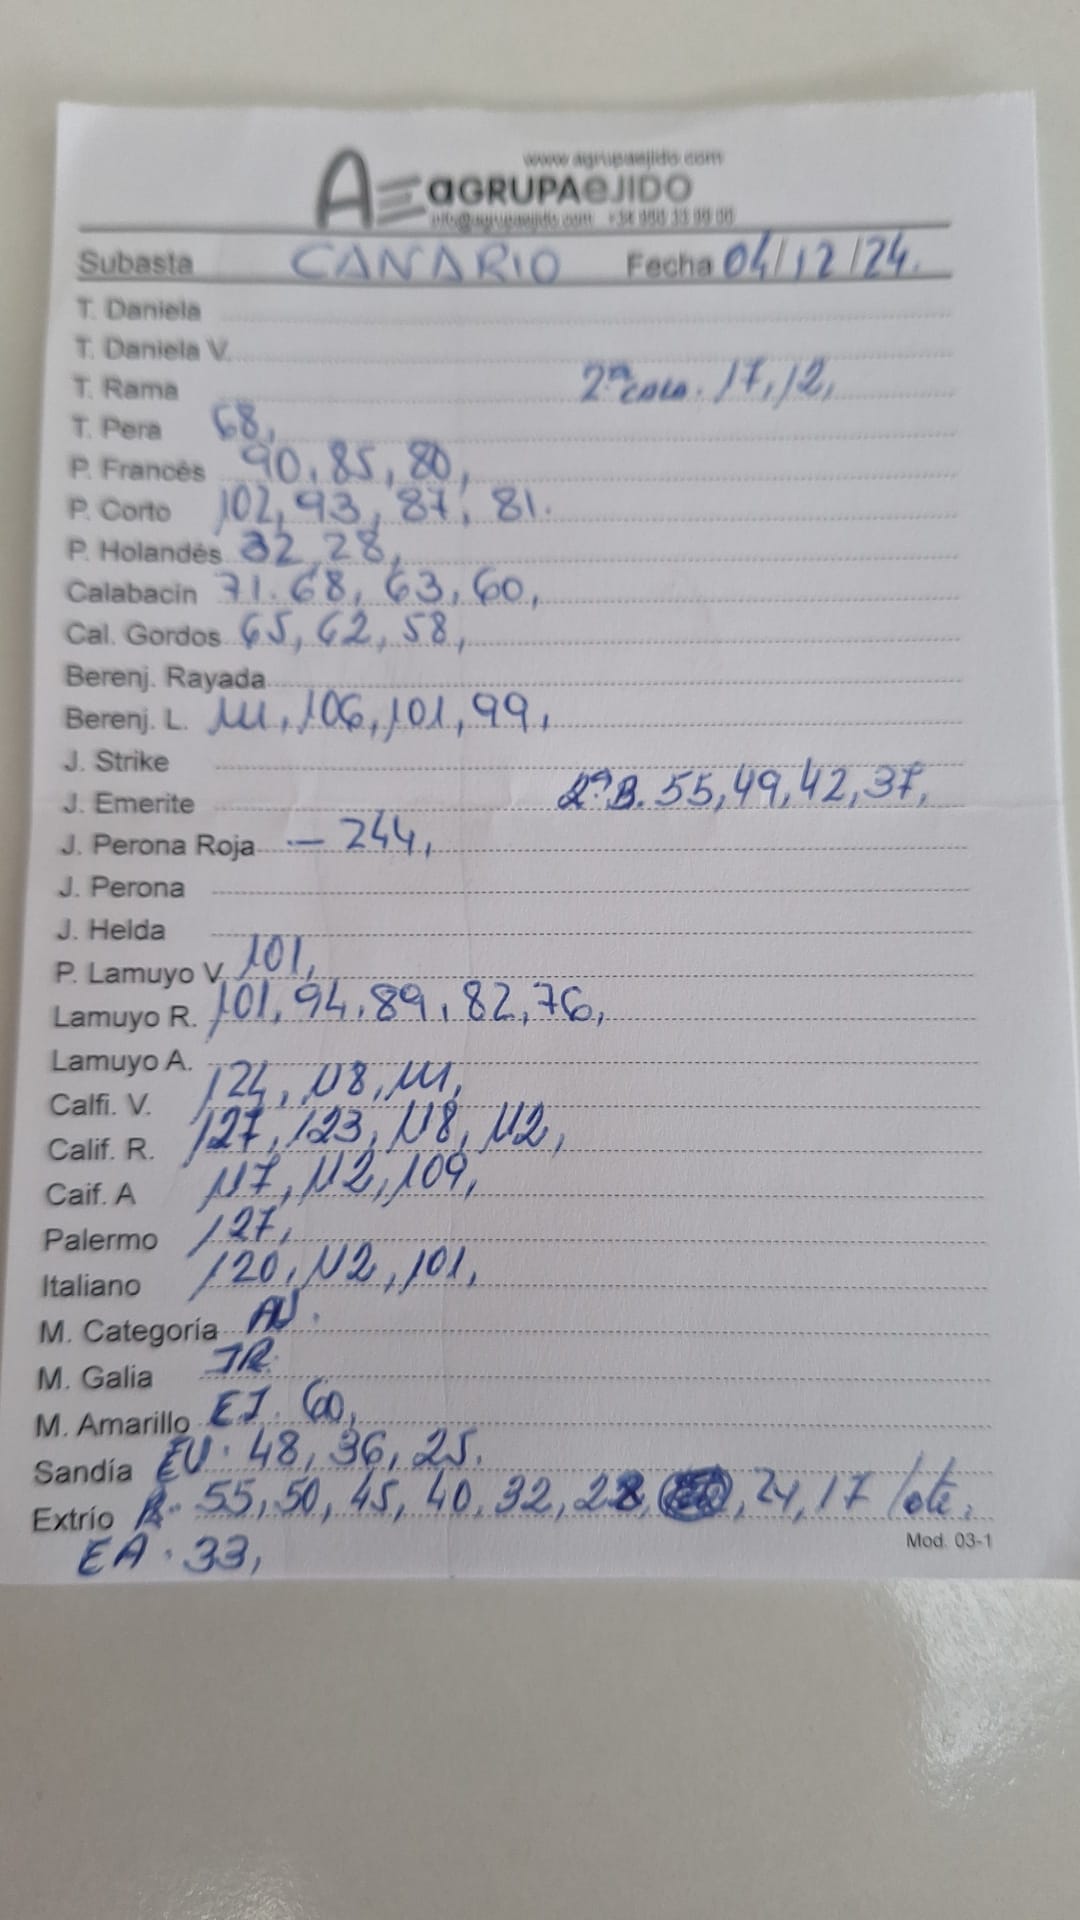 www.agrupaejido.com
AE aGRUPAeJIDO
info@agrupaejido.com
Subasta CANARIO Fecha 04/12/24.
T. Daniela
T. Daniela V.
T. Rama 2ª cala. 17, 12,
T. Pera 68,
P. Francés 90, 85, 80,
P. Corto 102, 93, 87, 81.
P. Holandés 32, 28,
Calabacin 71. 68, 63, 60,
Cal. Gordos 65, 62, 58,
Berenj. Rayada
Berenj. L. 111, 106, 101, 99,
J. Strike
J. Emerite 2ª B. 55, 49, 42, 37,
J. Perona Roja — 244,
J. Perona
J. Helda
P. Lamuyo V. 101,
Lamuyo R. 101, 94, 89, 82, 76,
Lamuyo A.
Calfi. V. 124, 118, 111,
Calif. R. 127, 123, 118, 112,
Caif. A 117, 112, 109,
Palermo 127,
Italiano 120, 112, 101,
M. Categoría AV.
M. Galia JR.
M. Amarillo EJ. 60,
Sandía EV. 48, 36, 25.
Extrío R. 55, 50, 45, 40, 32, 28, 24, 17
Mod. 03-1
EA. 33,